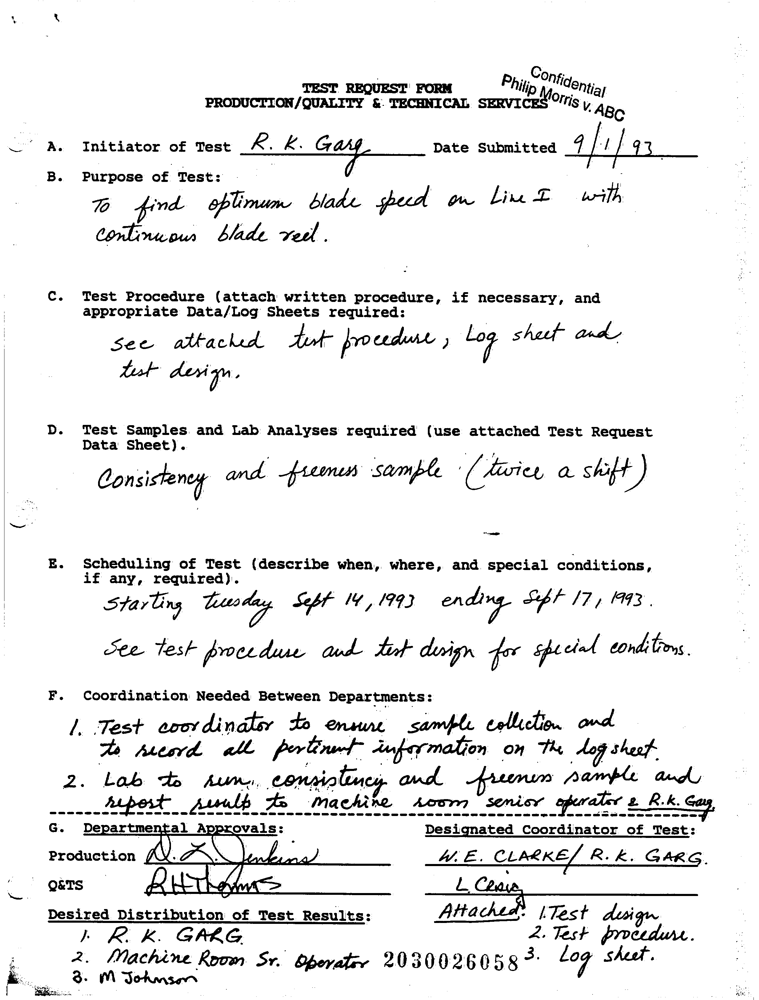 Confidential
TEST REQUEST FORM Philip Morris v. ABC
PRODUCTION/QUALITY & TECHNICAL SERVICES
A. Initiator of Test R. K. Garg Date Submitted 9/1/93
B. Purpose of Test:
To find optimum blade speed on Line I with
continuous blade reel.
C. Test Procedure (attach written procedure, if necessary, and
appropriate Data/Log Sheets required:
see attached test procedure, Log sheet and
test design.
D. Test Samples and Lab Analyses required (use attached Test Request
Data Sheet).
Consistency and freeness sample (twice a shift)
E. Scheduling of Test (describe when, where, and special conditions,
if any, required).
Starting tuesday Sept 14, 1993 ending Sept 17, 1993.
See test procedure and test design for special conditions.
F. Coordination Needed Between Departments:
1. Test coordinator to ensure sample collection and
to record all pertinent information on the log sheet.
2. Lab to run consistency and freeness sample and
report results to machine room senior operator & R.K. Garg
G. Departmental Approvals: Designated Coordinator of Test:
Production D. L. Jenkins W. E. CLARKE/ R. K. GARG.
Q&TS RHThomas L Craig
Desired Distribution of Test Results: Attached: 1. Test design
1. R. K. GARG 2. Test procedure.
2. Machine Room Sr. Operator 2030026058 3. Log sheet.
3. M Johnson